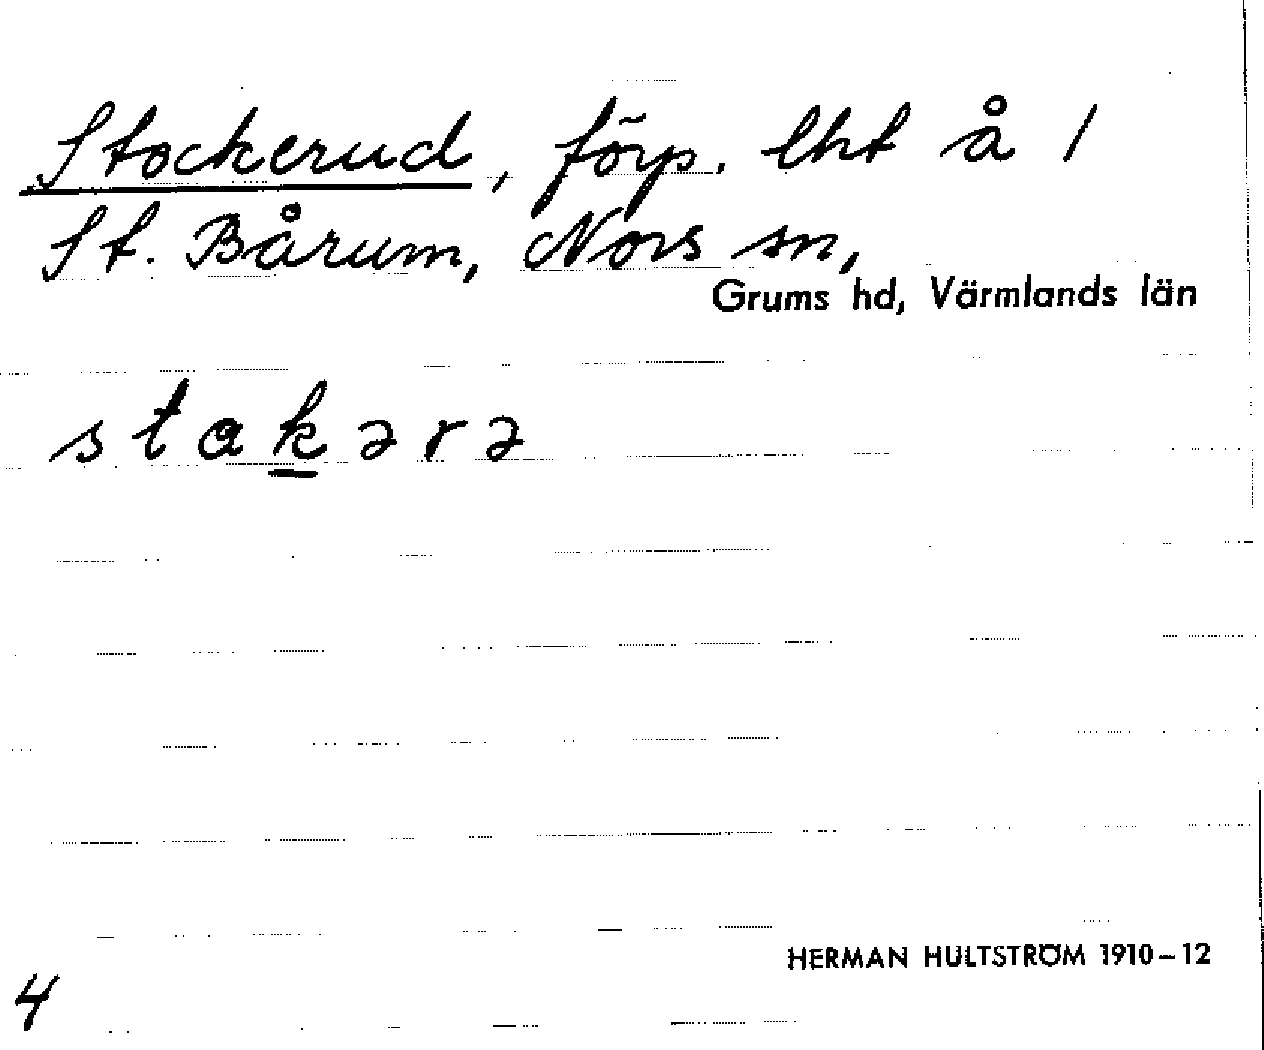 Stockerud, förp. lht å 1
St. Bårum, Nors sn,
Grums hd, Värmlands län
stakərə
HERMAN HULTSTRÖM 1910-12
4